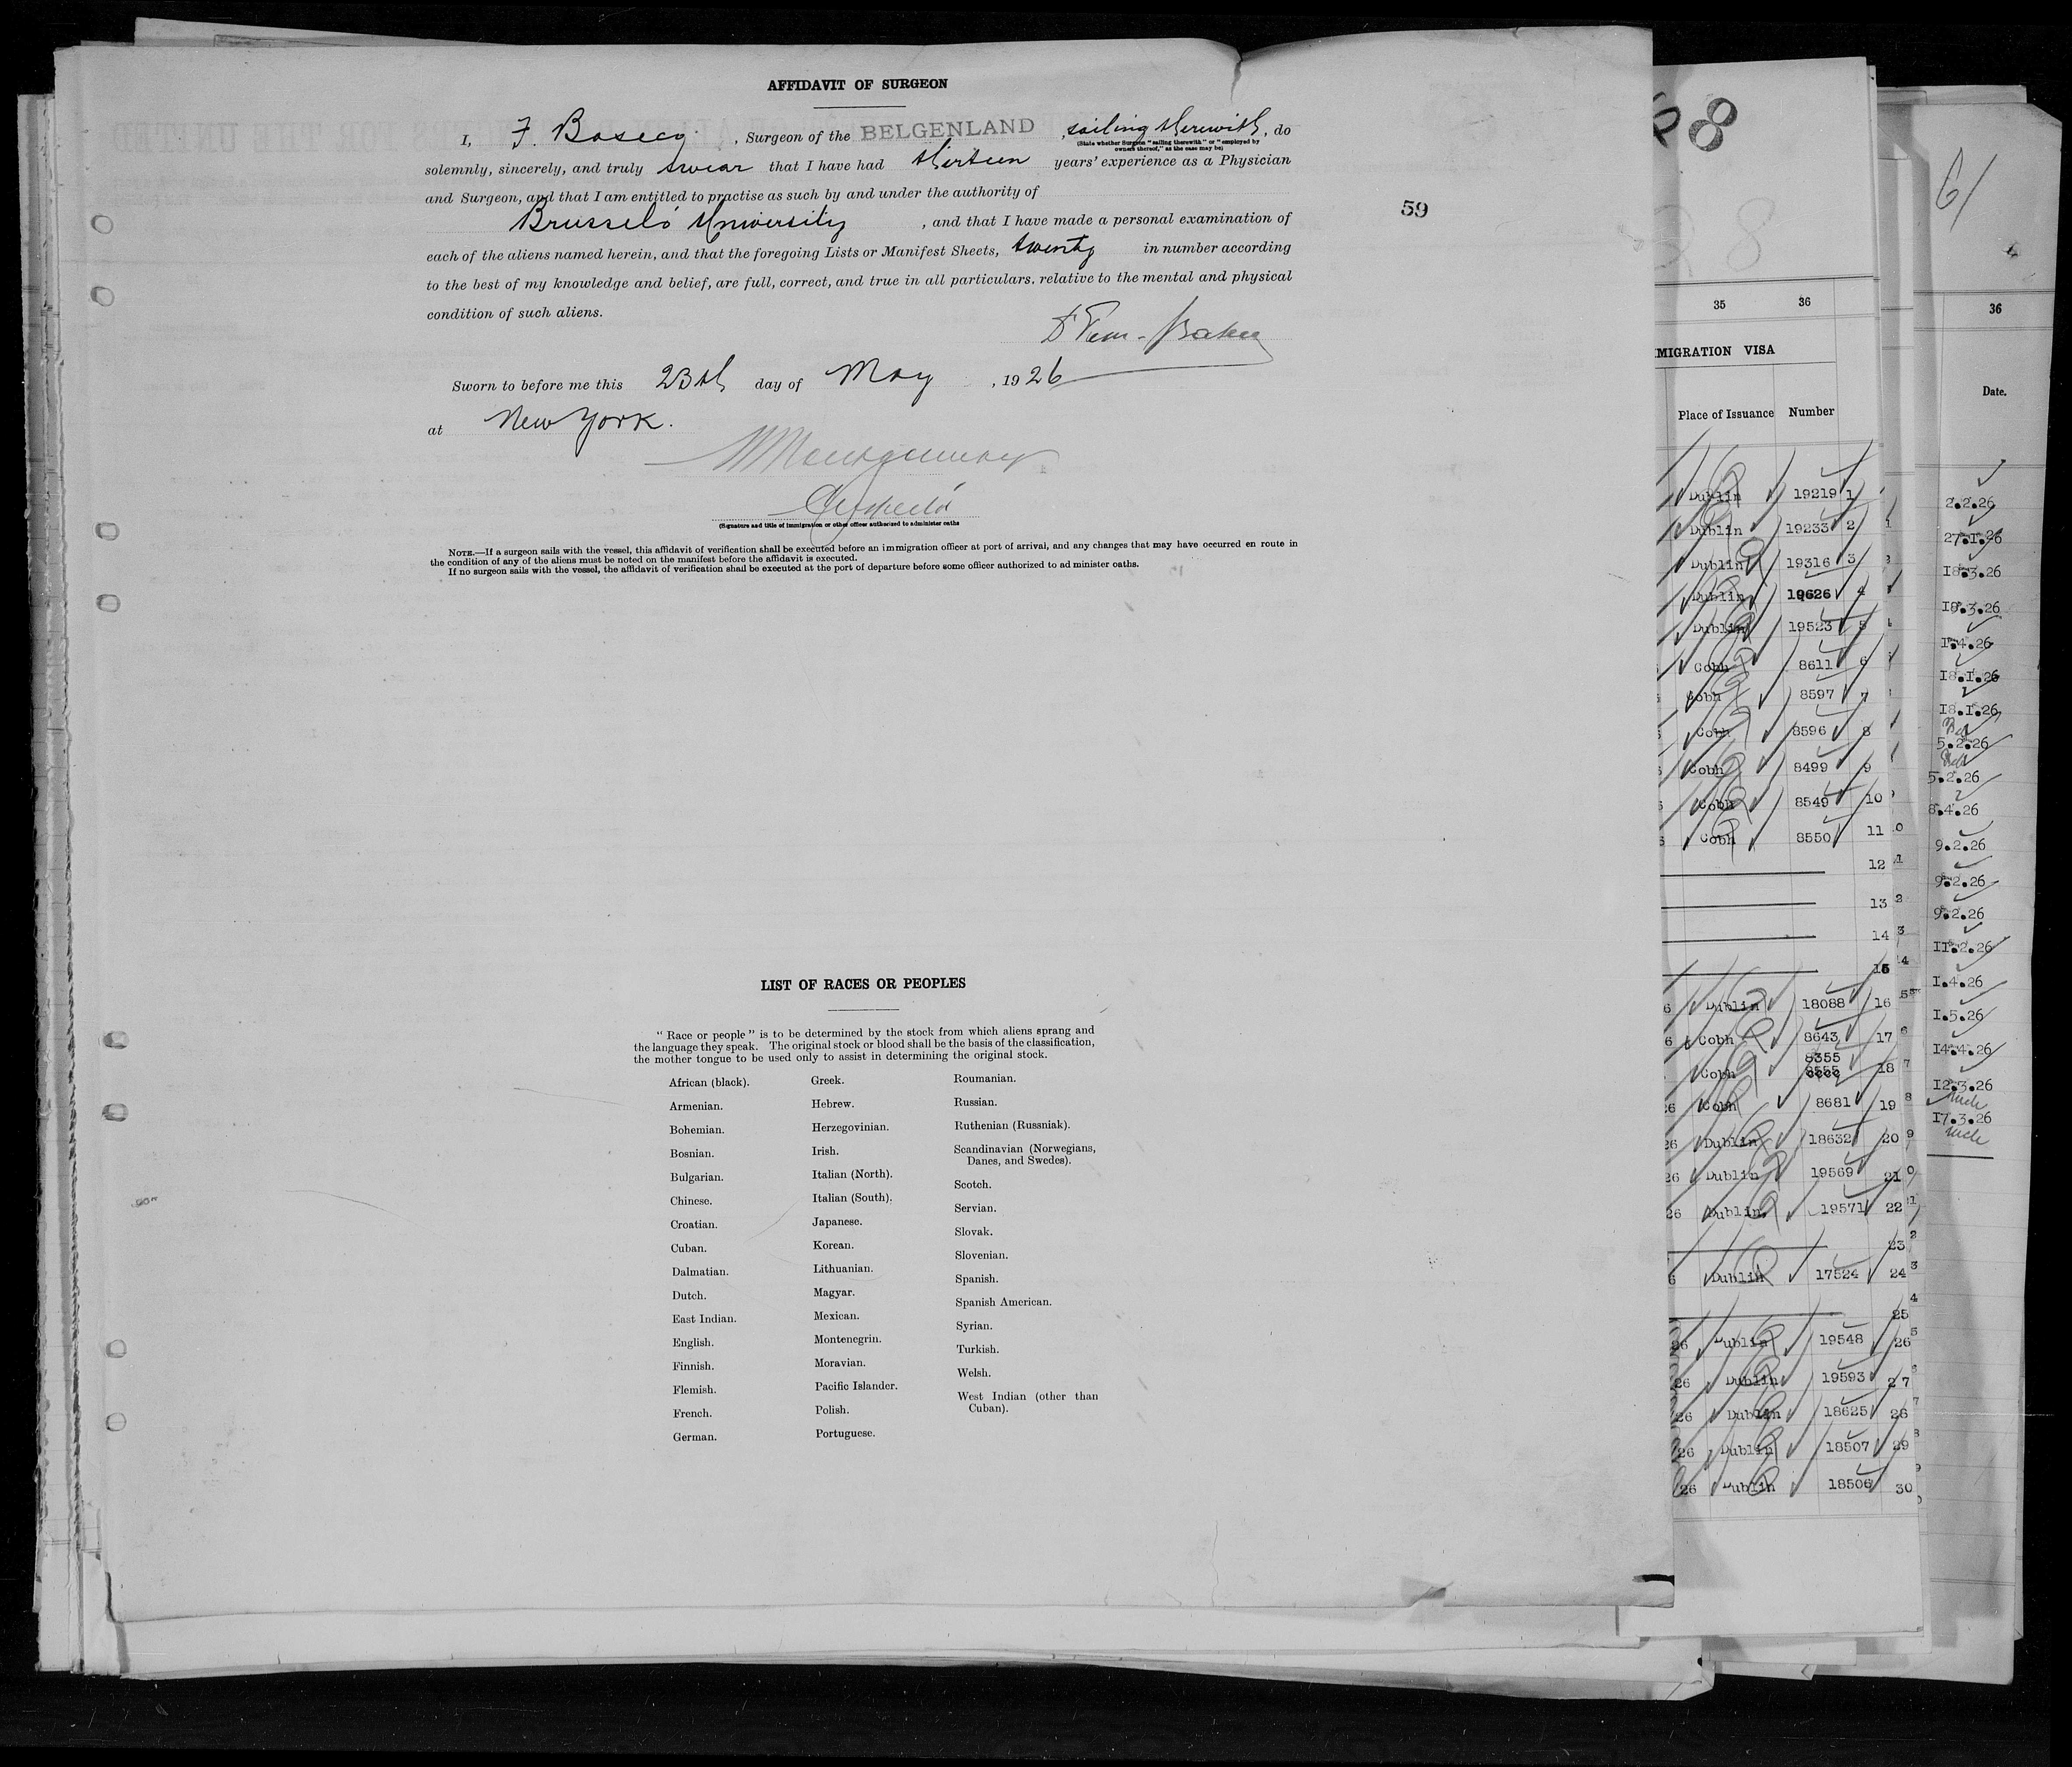 AFFIDAVIT OF SURGEON
I, F. , Surgeon of the BELGENLAND , sailing therewith, do
(State whether Surgeon "sailing therewith" or "employed by
owners thereof," as the case may be)
solemnly, sincerely, and truly swear that I have had thirteen years' experience as a Physician
and Surgeon, and that I am entitled to practise as such by and under the authority of
Brussels University , and that I have made a personal examination of
each of the aliens named herein, and that the foregoing Lists or Manifest Sheets, twenty in number according
to the best of my knowledge and belief, are full, correct, and true in all particulars. relative to the mental and physical
condition of such aliens.
Sworn to before me this 23th day of May , 1926
at New York.
Montgomery
(Signature and title of immigration or other officer authorized to administer oaths
NOTE.—If a surgeon sails with the vessel, this affidavit of verification shall be executed before an immigration officer at port of arrival, and any changes that may have occurred en route in
the condition of any of the aliens must be noted on the manifest before the affidavit is executed.
If no surgeon sails with the vessel, the affidavit of verification shall be executed at the port of departure before some officer authorized to ad minister oaths.
59
LIST OF RACES OR PEOPLES
"Race or people" is to be determined by the stock from which aliens sprang and
the language they speak. The original stock or blood shall be the basis of the classification,
the mother tongue to be used only to assist in determining the original stock.
African (black).
Armenian.
Bohemian.
Bosnian.
Bulgarian.
Chinese.
Croatian.
Cuban.
Dalmatian.
Dutch.
East Indian.
English.
Finnish.
Flemish.
French.
German.
Greek.
Hebrew.
Herzegovinian.
Irish.
Italian (North).
Italian (South).
Japanese.
Korean.
Lithuanian.
Magyar.
Mexican.
Montenegrin.
Moravian.
Pacific Islander.
Polish.
Portuguese.
Roumanian.
Russian.
Ruthenian (Russniak).
Scandinavian (Norwegians,
Danes, and Swedes).
Scotch.
Servian.
Slovak.
Slovenian.
Spanish.
Spanish American.
Syrian.
Turkish.
Welsh.
West Indian (other than
Cuban).
8
35 36
MIGRATION VISA
Place of Issuance Number
Dublin 19219 1
Dublin 19233 2
Dublin 19316 3
Dublin 19626 4
Dublin 19523 5
Cobh 8611 6
Cobh 8597 7
Cobh 8596 8
Cobh 8499 9
Cobh 8549 10
Cobh 8550 11
12
13
14
15
6 Dublin 18088 16
6 Cobh 8643 17
8355
Cobh 18
26 Cobh 8681 19
26 Dublin 18632 20
26 Dublin 19569 21
26 Dublin 19571 22
23
6 Dublin 17524 24
25
26 Dublin 19548 26
26 Dublin 19593 27
26 Dublin 18625 28
26 Dublin 18507 29
26 Dublin 18506 30
61
36
Date.
2.2.26
27.1.26
18.3.26
18.3.26
1.4.26
18.1.26
18.1.26
5.2.26
5.2.26
8.4.26
9.2.26
9.2.26
9.2.26
11.2.26
1.4.26
1.5.26
14.4.26
12.3.26
17.3.26